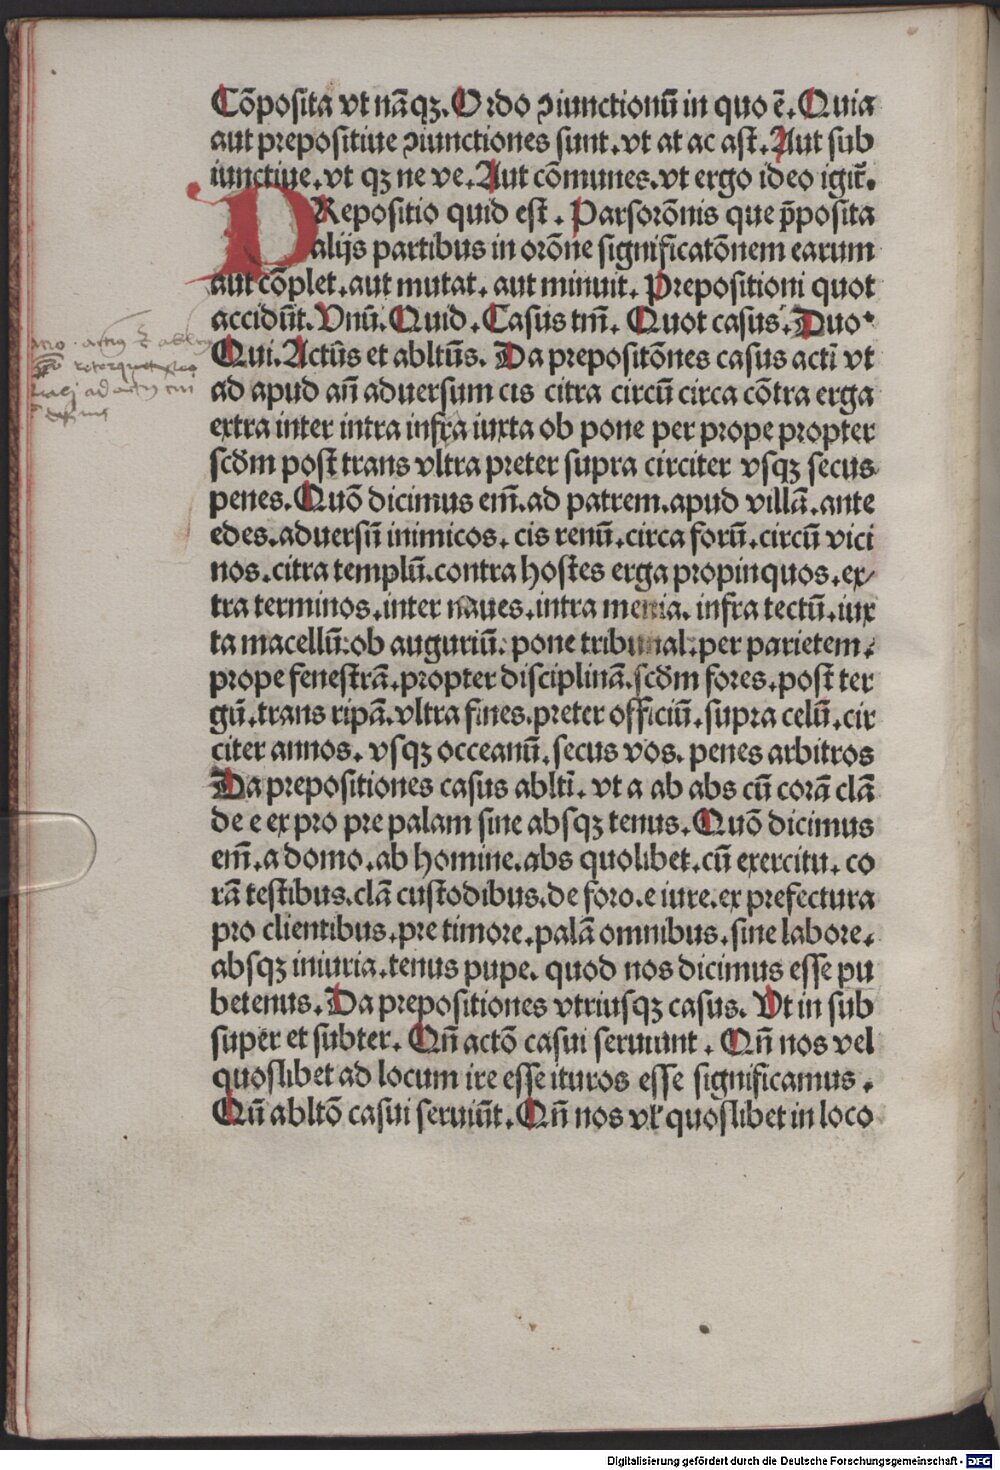 Cōposita vt nāqꝫ. Ordo ↄiunctionū in quo ē. Quia
aut prepositiue ↄiunctiones sunt. vt at ac ast. Aut sub
iunctiue. vt qꝫ ne ve. Aut cōmunes. vt ergo ideo igit̄.
PRepositio quid est. Parsorōnis que p̄posita
alijs partibus in orōne significatōnem earum
aut cōplet. aut mutat. aut minuit. Prepositioni quot
accidūt. Vnū. Quid. Casus tm̄. Quot casus. Duo.
Qui. Actūs et abltūs. Da prepositōnes casus acti vt
ad apud an̄ aduersum cis citra circū circa cōtra erga
extra inter intra infra iuxta ob pone per prope propter
scd̄m post trans vltra preter supra circiter vsqꝫ secus
penes. Quō dicimus em̄. ad patrem. apud villā. ante
edes. aduersū inimicos. cis renū. circa forū. circū vici
nos. citra templū. contra hostes erga propinquos. ex/
tra terminos. inter naues. intra menia. infra tectū. iux
ta macellū: ob auguriū: pone tribunal: per parietem.
prope fenestrā. propter disciplinā. scd̄m fores. post ter
gū. trans ripā. vltra fines. preter officiū. supra celū. cir
citer annos. vsqꝫ occeanū. secus vos. penes arbitros
Da prepositiones casus ablti. vt a ab abs cū corā clā
de e ex pro pre palam sine absqꝫ tenus. Quō dicimus
em̄. a domo. ab homine. abs quolibet. cū exercitu. co
rā testibus. clā custodibus. de foro. e iure. ex prefectura
pro clientibus. pre timore. palā omnibus. sine labore.
absqꝫ iniuria. tenus pupe. quod nos dicimus esse pu
betenus. Da prepositiones vtriusqꝫ casus. Vt in sub
super et subter. Qn̄ actō casui seruiunt. Qn̄ nos vel
quoslibet ad locum ire esse ituros esse significamus.
Qn̄ abltō casui seruiūt. Qn̄ nos vl̓ quoslibet in loco
Digitalisierung gefördert durch die Deutsche Forschungsgemeinschaft - DFG